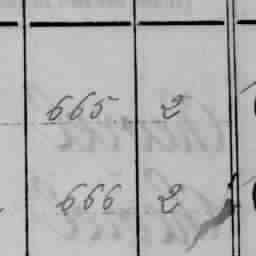 665 2
666 2